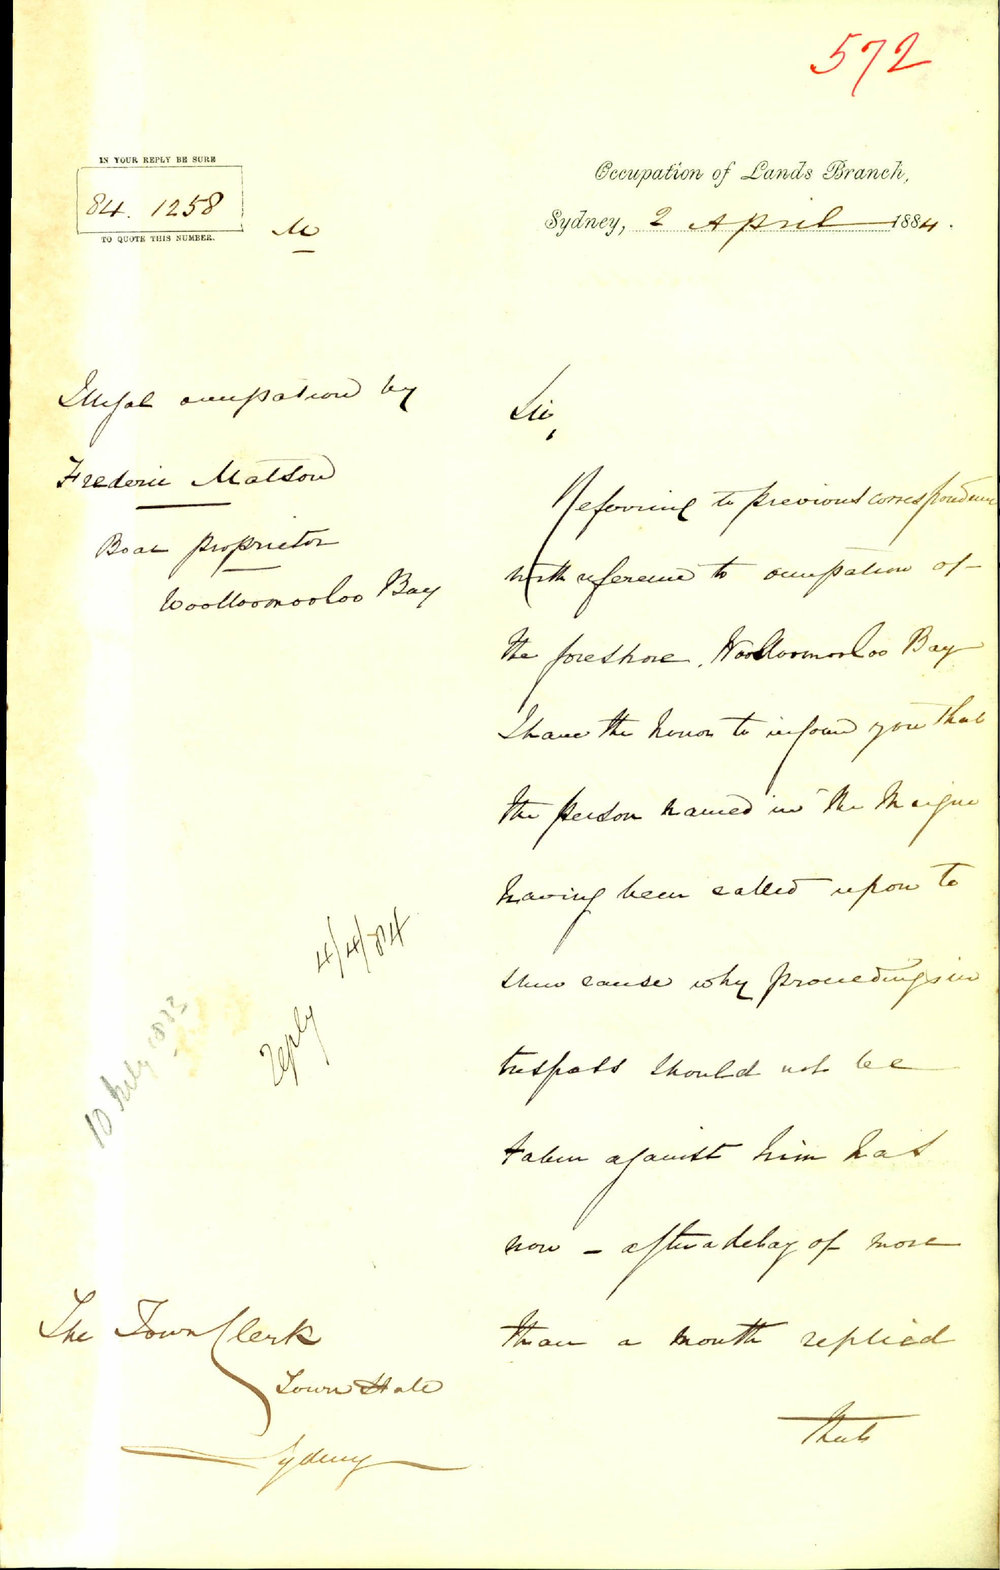 572
IN YOUR REPLY BE SURE
84. 1258
TO QUOTE THIS NUMBER.
M
Occupation of Lands Branch,
Sydney, 2 April 1884.
Illegal occupation by
Frederic Matson
Boat proprietor
Woolloomooloo Bay
Sir,
Referring to previous correspondence
with reference to occupation of
the foreshore, Woolloomooloo Bay
I have the honor to inform you that
the person named in the Margin
having been called upon to
shew cause why proceedings in
trespass should not be
taken against him has
now - after a delay of more
than a month replied
that
Reply 4/4/84
10 July 1883
The Town Clerk
Town Hall
Sydney